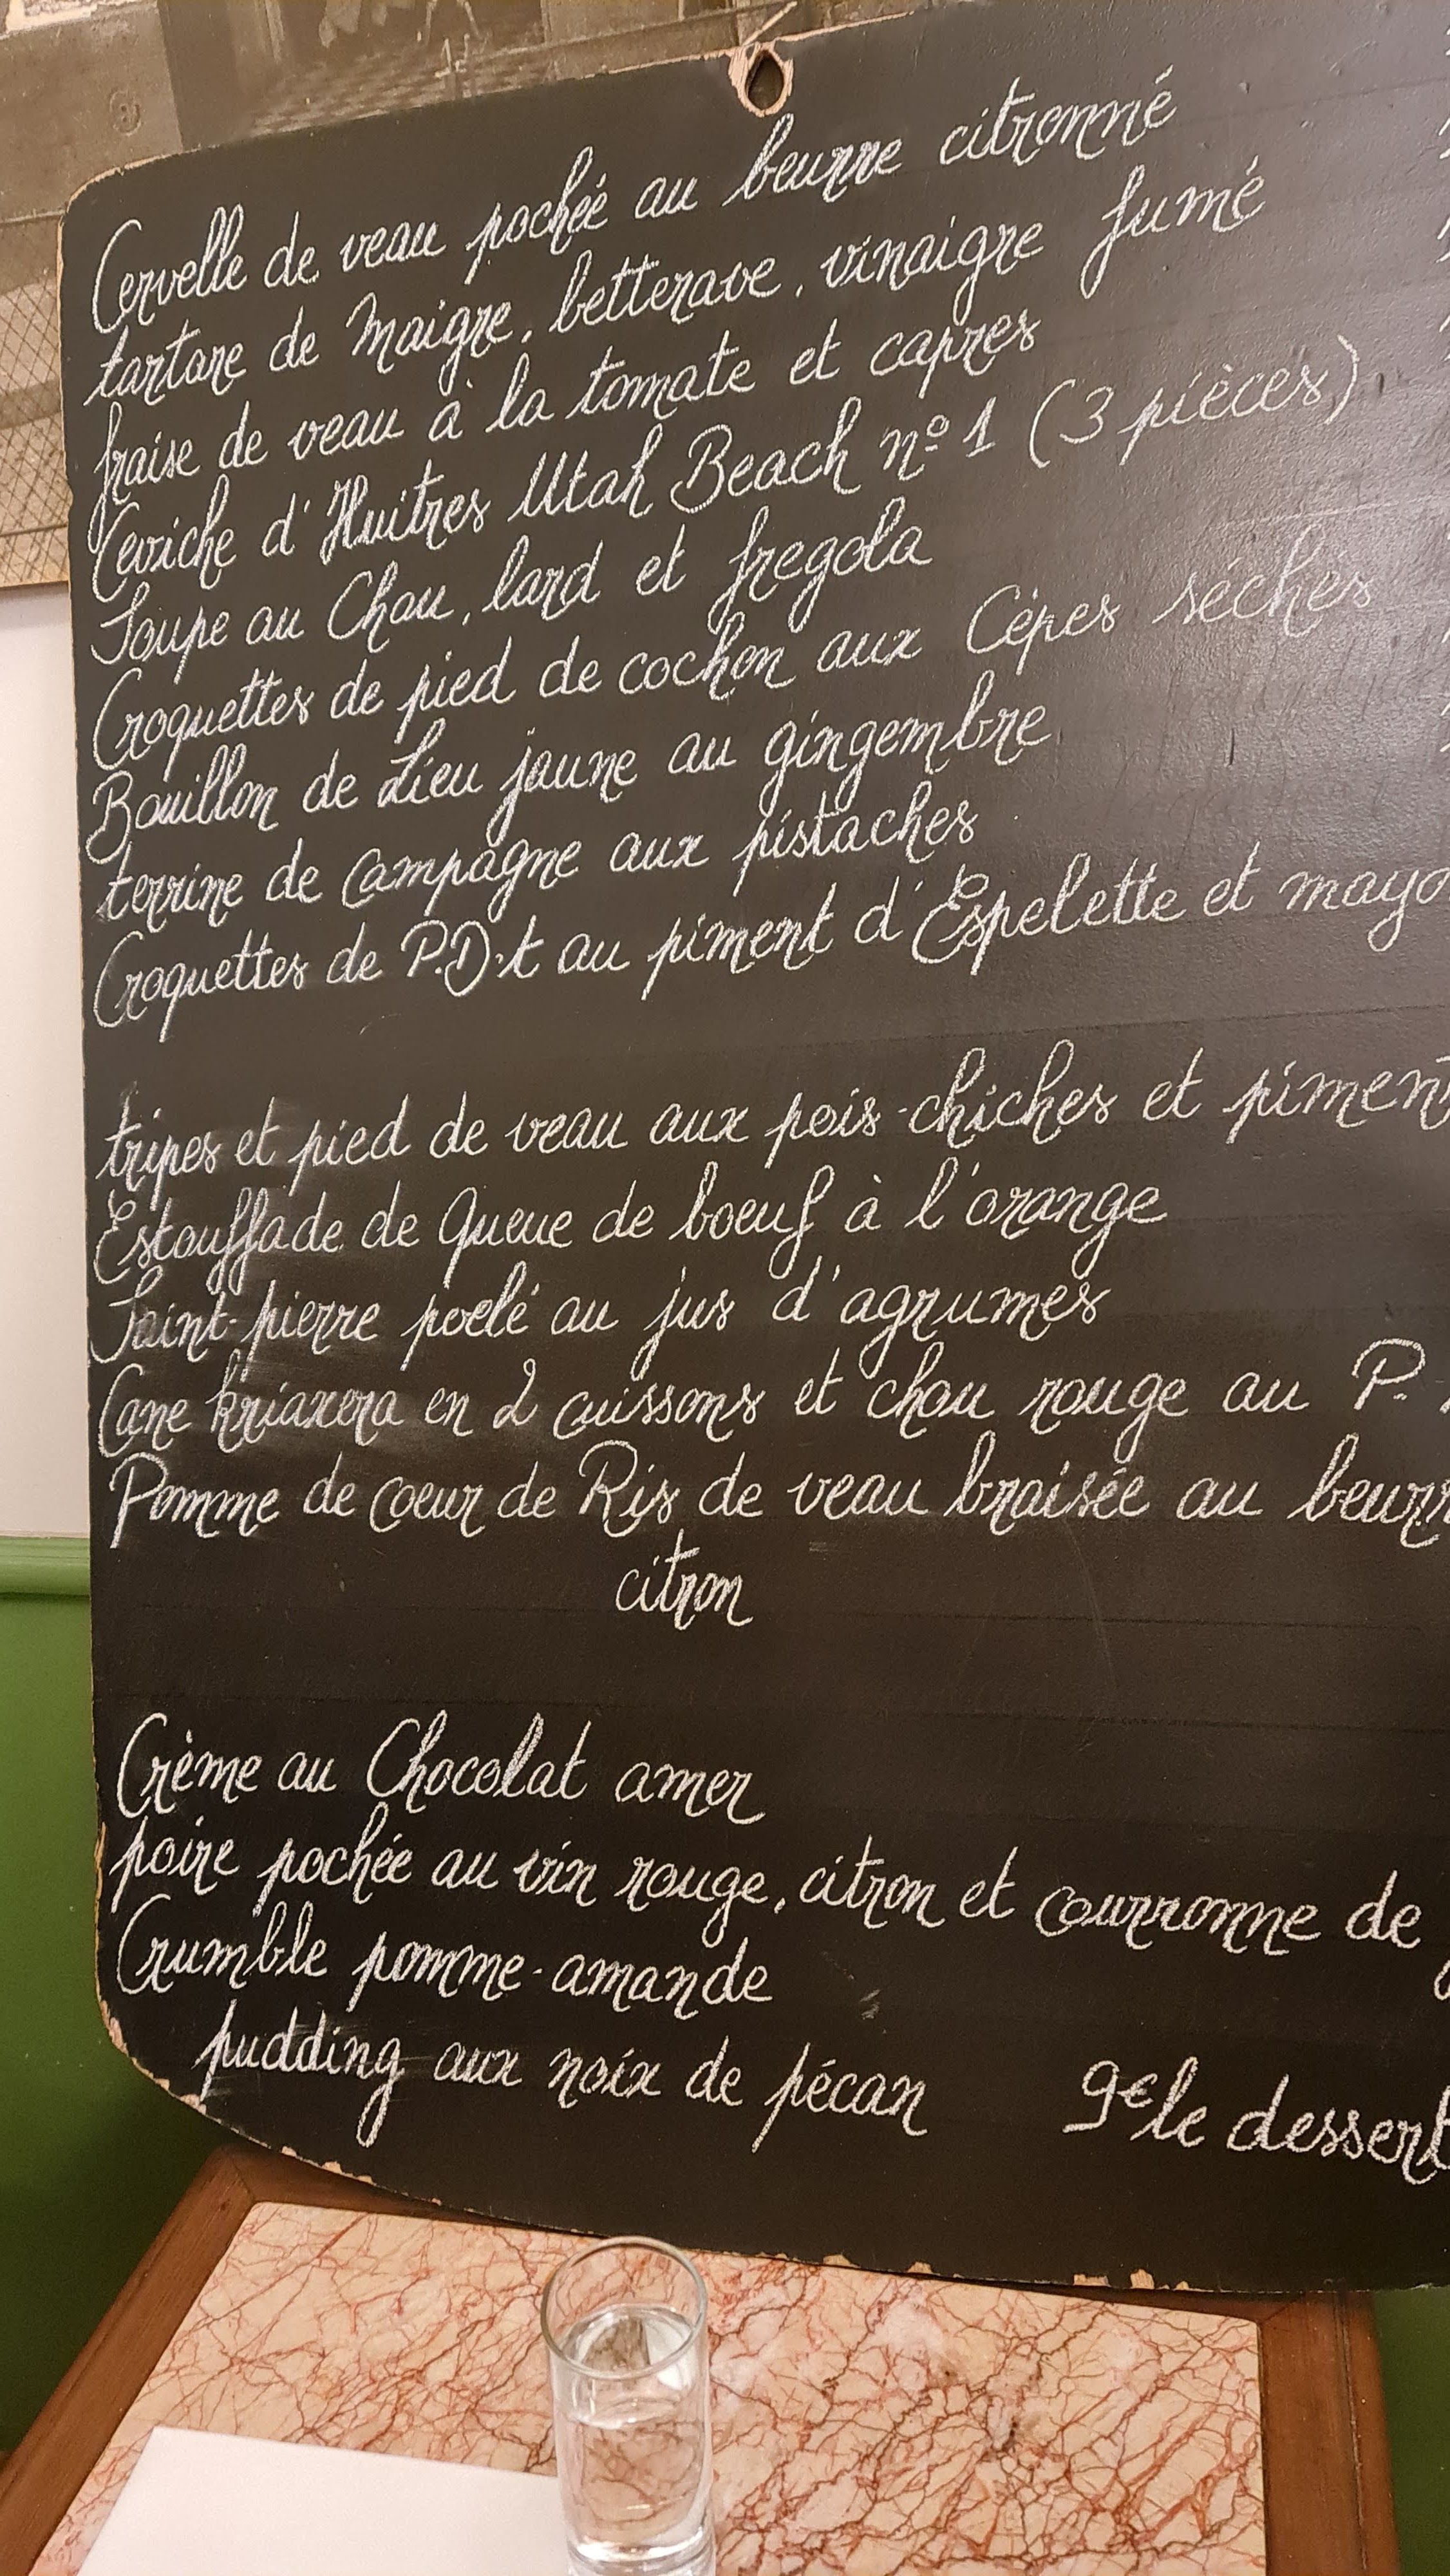 Cervelle de veau pochée au beurre citronné
tartare de Maigre, betterave, vinaigre fumé
fraise de veau à la tomate et capres
Ceviche d'Huitres Utah Beach nº1 (3 pièces)
Soupe au Chou, lard et fregola
Croquettes de pied de cochon aux Cépes séches
Bouillon de Lieu jaune au gingembre
terrine de Campagne aux pistaches
Croquettes de P.D.t au piment d'Espelette et mayo
tripes et pied de veau aux pois-chiches et piment
Estouffade de Queue de boeuf à l'orange
Saint-pierre poelé au jus d'agrumes
Cane Kriaxera en 2 cuissons et chou rouge au P.
Pomme de coeur de Ris de veau braisée au beurr
citron
Crème au Chocolat amer
poire pochée au vin rouge, citron et courronne de
Crumble pomme-amande
pudding aux noix de pécan 9€ le dessert